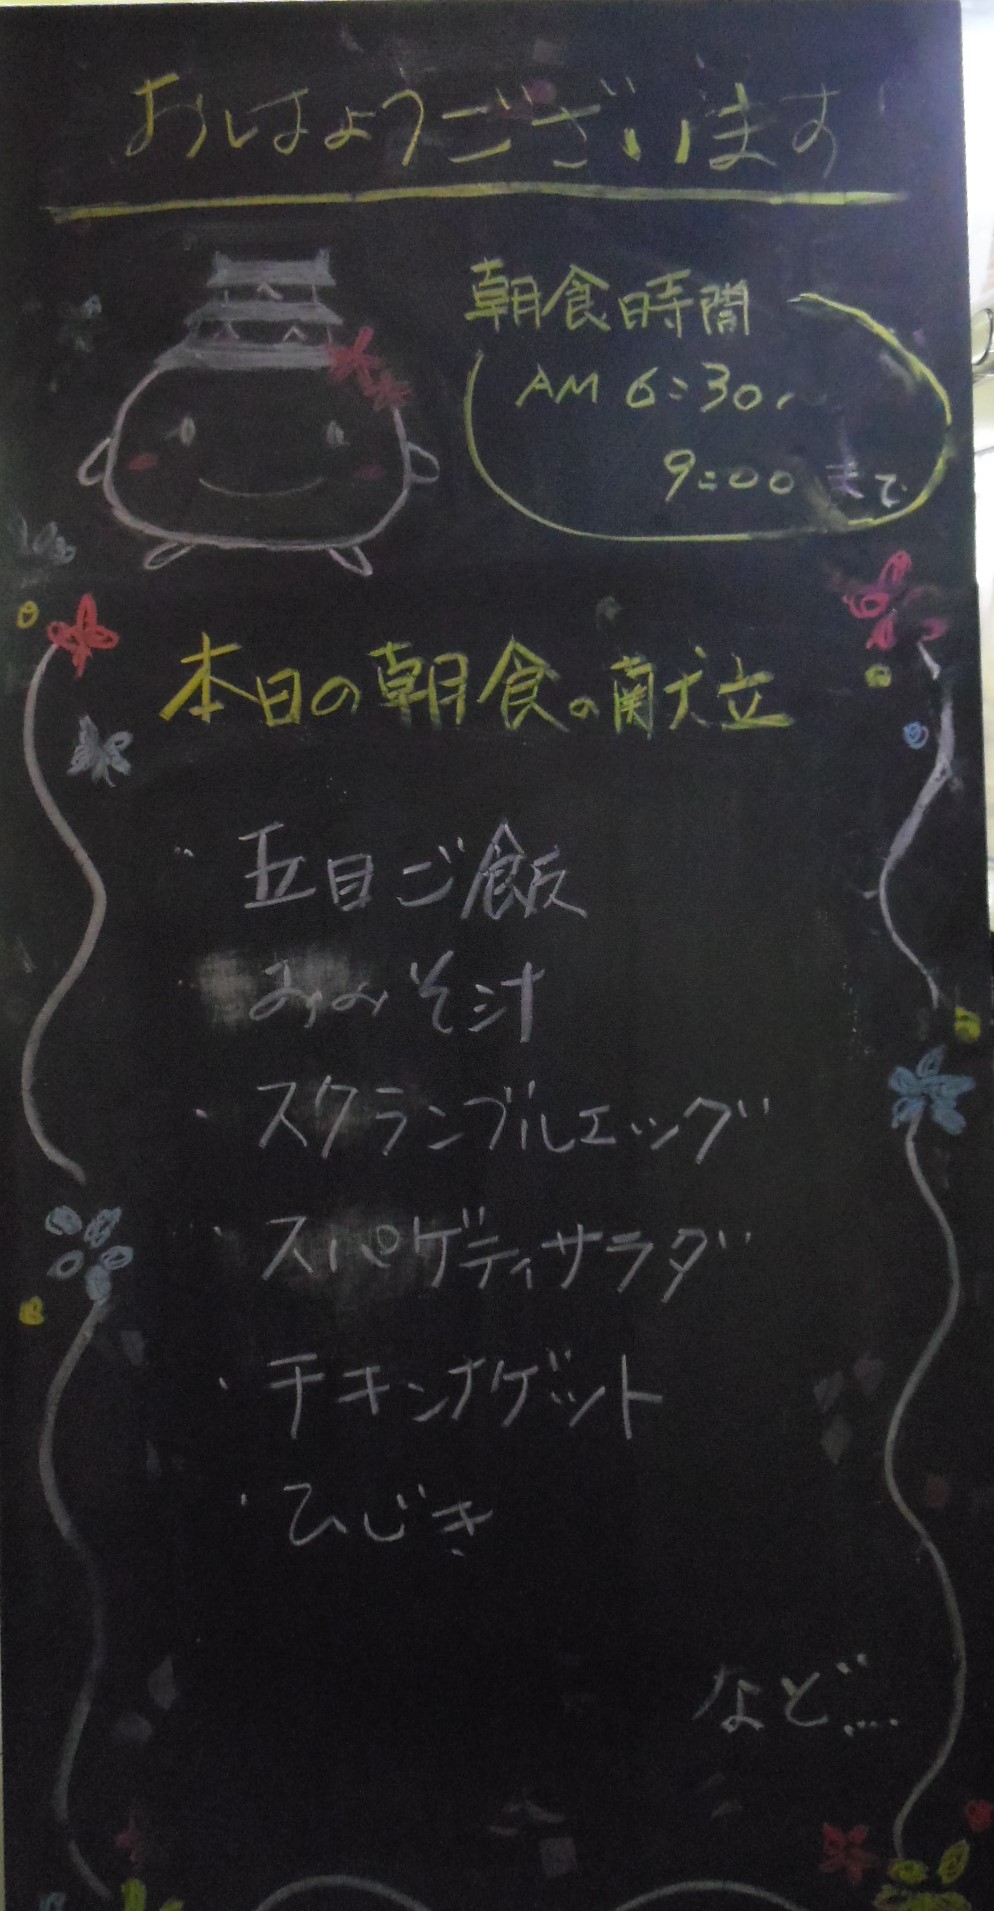 おはようございます
朝食時間
AM 6:30〜
9:00 まで
本日の朝食の献立
・五目ご飯
おみそ汁
・スクランブルエッグ
・スパゲティサラダ
・チキンナゲット
・ひじき
など....